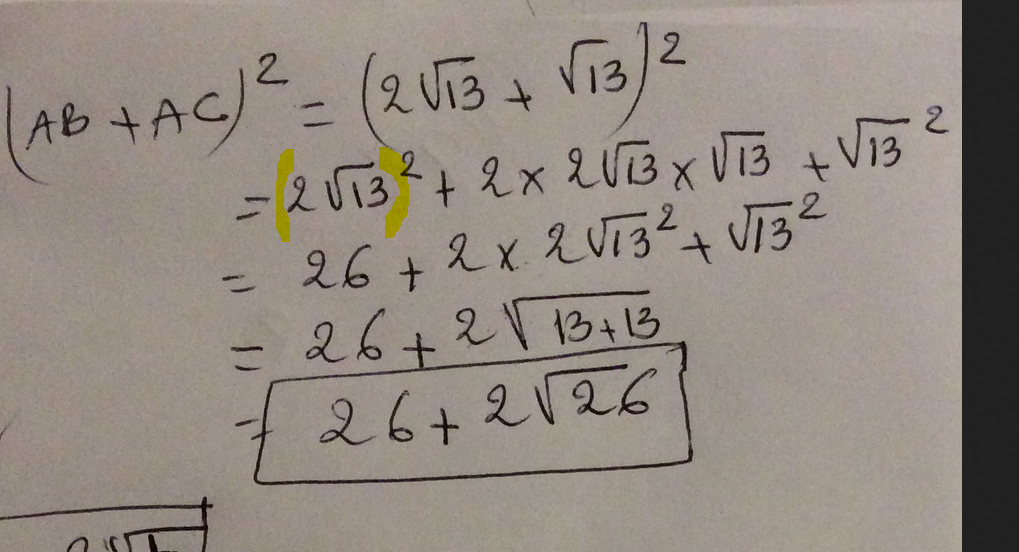 (AB + AC)² = (2√13 + √13)²
= (2√13)² + 2 × 2√13 × √13 + √13²
= 26 + 2 × 2√13² + √13²
= 26 + 2√(13+13)
= 26 + 2√26